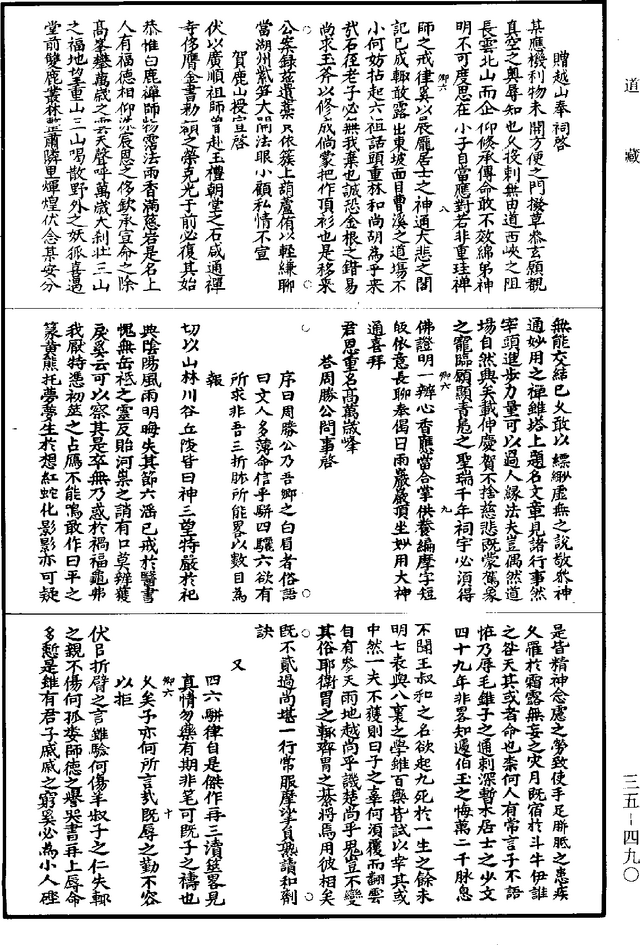 道藏
三五－四九〇
贈越山奉祠啓
其應機利物未開方便之門撥草參玄願覩
真空之奧辱知也久役剌無由道西峽之阻
長雲北山而企仰修承傳命敢不效綿弟神
明不可度思在小子自當應對若非重珪禪
師之戒律奚以展龐居士之神通大悲之閣
記已成輙敢露出東坡面目曹溪之道場不
小何妨拈起六祖話頭重林和尚胡爲乎來
哉石徑老子必無我棄也誠恐金根之錯易
尚求玉斧以修成倘蒙把作頂衫也是移來
公案録兹遺藁只依簇上葫蘆有以輊縑聊
當湖州紫笋大開法眼小顧私情不宣
賀鹿山授宣啓
伏以廣順祖師曽赴玉禮朝堂之石咸通禪
寺侈膺金書勑額之榮克光于前必復其始
恭惟白鹿禪師物霑法雨香滿慈岩是名上
人有福德相仰沐宸恩之侈欽承宣命之除
高峯擧萬歲之雲天聲呼萬歲大刹壯三山
之福地望重山三山喝散野外之妖狐喜邁
堂前雙鹿叢林整肅隣里輝煌伏念某安分
無能交結已久敢以縹緲虚無之說敬於神
通妙用之禪維塔上題名文章見諸行事然
宰頭進步力量可以過人緣法夫豈偶然道
場自然興矣載伸慶賀不捨慈悲既蒙駕象
之寵臨願顯青鳧之聖瑞千年祠宇必須得
佛證明一辨心香應當合掌供養編摩字短
皈依意長聊奉偈曰雨嚴嚴頂坐妙用大神
通喜拜
君恩重名高萬歲峰
荅周勝公問事啓
序曰周勝公乃吾鄉之白眉者俗語
曰文人多薄命信乎駢四驪六欲有
所求非吾三折肱所能畧以數目爲
報
切以山林川谷丘陵皆曰神三望特嚴於祀
典陰陽風雨明晦失其節六滛已戒於醫書
愧無岳祇之靈反貽河祟之誚有口莫辯獲
戾奚云可以察其是卒無乃惑於禍福龜弗
我厭特憑初筮之占鴈不能鳴敢作曰平之
篆黄熊托夢夢生於想紅蛇化影影亦可疑
是皆精神念慮之勞致使手足胼胝之患疾
久罹於霜露無妄之灾月既宿於斗牛伊誰
之欲天其或者命也柰何人有常言子不語
恠乃辱毛錐子之通剌深暫木居士之少文
四十九年非畧知邊伯玉之悔萬二千脉息
不聞王叔和之名欲起九死於一生之餘未
明七表與八裏之學維百藥皆試以幸其或
中然一夫不獲則曰子之辜何須覆而翻雲
自有參天雨地越尚乎譏楚尚乎鬼豈不變
其俗耶衛胃之輙齊胃之綦將焉用彼相矣
既不貳過尚堪一行常服摩挲負熟讀和劑
訣
又
四六駢律自是傑作再三瀆筮畧見
真情勿藥有期非笔可既子之禱也
久矣予亦何所言哉既辱之勤不容
以拒
伏㠯折臂之言雖驗何傷羊叔子之仁失輙
之覲不傷何孤婁師德之量哭書再上辱命
多慙是雖有君子戚戚之窮奚必爲小人硜